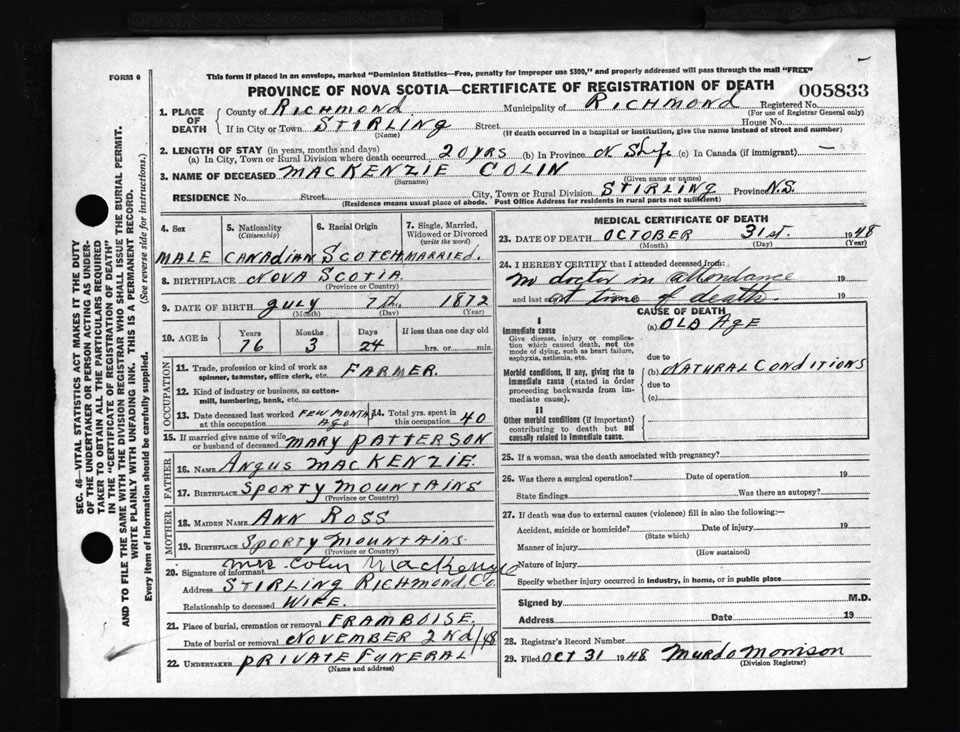 FORM 6
This form if placed in an envelope, marked "Dominion Statistics—Free, penalty for improper use $300," and properly addressed will pass through the mail "FREE"
PROVINCE OF NOVA SCOTIA—CERTIFICATE OF REGISTRATION OF DEATH
005833
1. PLACE OF DEATH
County of RICHMOND Municipality of RICHMOND Registered No.
(For use of Registrar General only)
If in City or Town STIRLING Street House No.
(Name) (If death occurred in a hospital or institution, give the name instead of street and number)
2. LENGTH OF STAY (in years, months and days)
(a) In City, Town or Rural Division where death occurred 20 YRS (b) In Province N. S Life (c) In Canada (if immigrant) —
3. NAME OF DECEASED MACKENZIE COLIN
(Surname) (Given name or names)
RESIDENCE No. Street City, Town or Rural Division STIRLING Province N.S.
(Residence means usual place of abode. Post Office Address for residents in rural parts not sufficient)
4. Sex
MALE
5. Nationality
(Citizenship)
CANADIAN
6. Racial Origin
SCOTCH
7. Single, Married, Widowed or Divorced
(write the word)
MARRIED.
8. BIRTHPLACE NOVA SCOTIA
(Province or Country)
9. DATE OF BIRTH JULY 7th 1872
(Month) (Day) (Year)
10. AGE in
Years Months Days If less than one day old
76 3 24 hrs. or min.
OCCUPATION
11. Trade, profession or kind of work as spinner, teamster, office clerk, etc. FARMER.
12. Kind of industry or business, as cotton-mill, lumbering, bank, etc.
13. Date deceased last worked at this occupation FEW MONTHS AGO
14. Total yrs. spent in this occupation 40
15. If married give name of wife or husband of deceased MARY PATTERSON
FATHER
16. NAME ANGUS MACKENZIE.
17. BIRTHPLACE SPORTY MOUNTAINS
(Province or Country)
MOTHER
18. MAIDEN NAME ANN ROSS
19. BIRTHPLACE SPORTY MOUNTAINS.
(Province or Country)
20. Signature of informant Mrs Colin Mackenzie
Address STIRLING RICHMOND, Co.
Relationship to deceased WIFE.
21. Place of burial, cremation or removal FRAMBOISE.
Date of burial or removal NOVEMBER 2nd/48
22. UNDERTAKER PRIVATE FUNERAL
(Name and address)
MEDICAL CERTIFICATE OF DEATH
23. DATE OF DEATH OCTOBER 31st. 1948
(Month) (Day) (Year)
24. I HEREBY CERTIFY that I attended deceased from:
no doctor in attendance 19
and last saw at time of death. 19
CAUSE OF DEATH
I
Immediate cause
Give disease, injury or complication which caused death, not the mode of dying, such as heart failure, asphyxia, asthenia, etc.
(a) OLD AGE
due to
Morbid conditions, if any, giving rise to immediate cause (stated in order proceeding backwards from immediate cause).
(b) NATURAL CONDITIONS
due to
(c)
II
Other morbid conditions (if important) contributing to death but not causally related to immediate cause.
25. If a woman, was the death associated with pregnancy?
26. Was there a surgical operation? Date of operation 19
State findings Was there an autopsy?
27. If death was due to external causes (violence) fill in also the following:—
Accident, suicide or homicide? Date of injury 19
(State which)
Manner of injury
(How sustained)
Nature of injury
Specify whether injury occurred in industry, in home, or in public place
Signed by M.D.
Address Date 19
28. Registrar's Record Number
29. Filed OCT 31 1948 Murdo Morrison
(Division Registrar)
SEC. 46—VITAL STATISTICS ACT MAKES IT THE DUTY
OF THE UNDERTAKER OR PERSON ACTING AS UNDERTAKER TO OBTAIN ALL THE PARTICULARS REQUIRED
IN THE "CERTIFICATE OF REGISTRATION OF DEATH"
AND TO FILE THE SAME WITH THE DIVISION REGISTRAR WHO SHALL ISSUE THE BURIAL PERMIT.
WRITE PLAINLY WITH UNFADING INK. THIS IS A PERMANENT RECORD.
Every item of information should be carefully supplied. (See reverse side for instructions.)